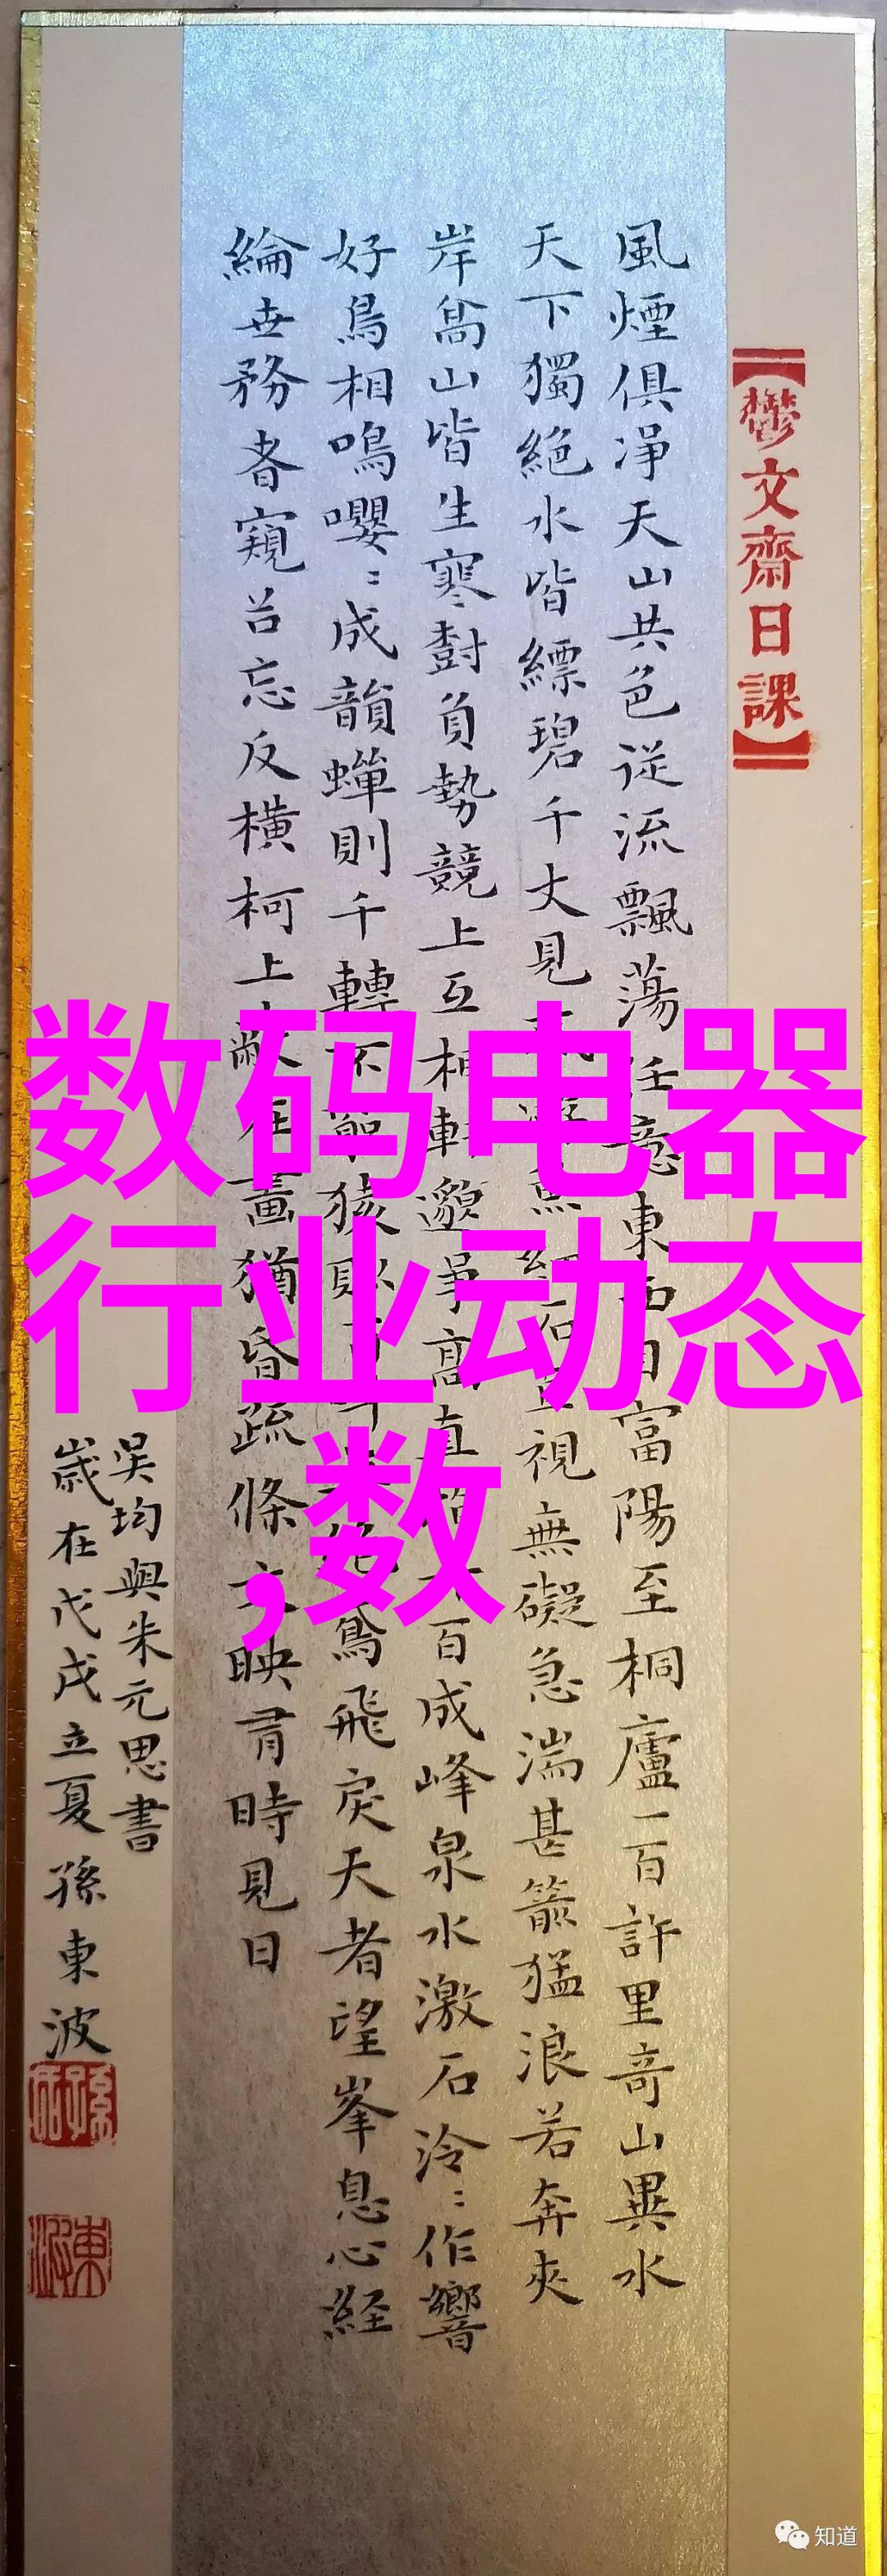 【鬱文齋日課】
風煙俱淨天山共色從流飄蕩任意東西自富陽至桐廬一百許里奇山異水
天下獨絕水皆縹碧千丈見魚石直視無礙急湍甚箭猛浪若奔夾
岸高山皆生寒樹負勢競上互相軒邈爭高直百成峰泉水激石泠泠作響
好鳥相鳴嚶嚶成韻蟬則千轉不猿則鳶飛戾天者望峯息心経
綸世務者窺谷忘反橫柯上蔽在晝猶昏疏條交映有時見日
吳均與朱元思書
歲在戊戌立夏孫東波
数码电器
行业动态
,数
知道